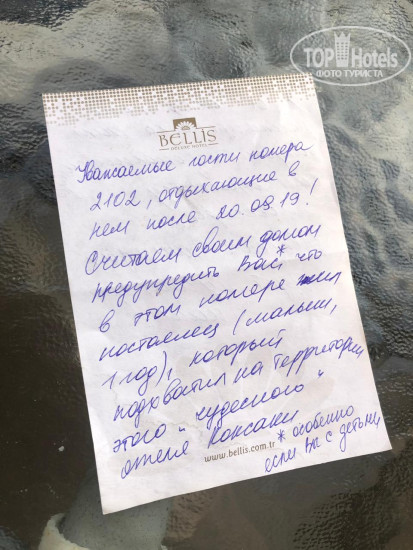 TOPHotels
ФОТО ТУРИСТА
BELLIS
DELUXE HOTEL
Уважаемые гости номера
2102, отдыхающие в
нем после 20.09.19!
Считаем своим долгом
предупредить Вас*, что
в этом номере жил
постоялец (малыш,
1 год), который
подхватил на территории
этого "чудесного"
отеля Коксаки
www.bellis.com.tr
* особенно
если Вы с детьми